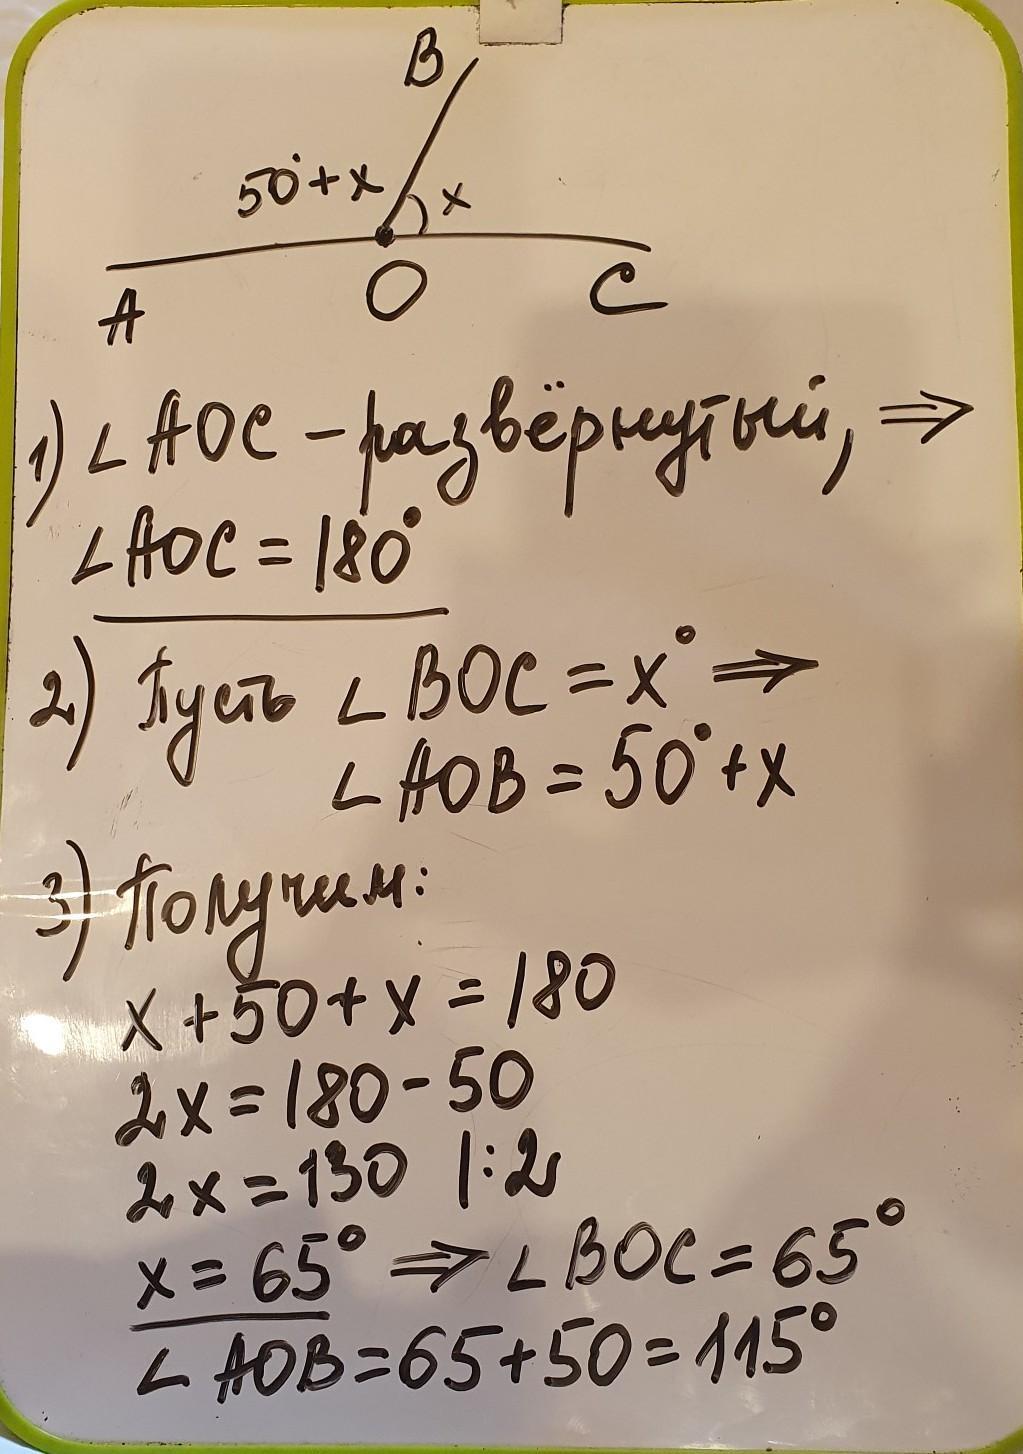 B
50°+x
x
A
O
C
1) ∠AOC - развёрнутый, ⇒
∠AOC = 180°
2) Пусть ∠BOC = x° ⇒
∠AOB = 50° + x
3) Получим:
x + 50 + x = 180
2x = 180 - 50
2x = 130 |:2
x = 65° ⇒ ∠BOC = 65°
∠AOB = 65 + 50 = 115°